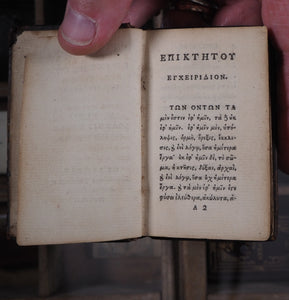 ΕΠΙΚΤΗΤΟΥ
ΕΓΧΕΙΡΙΔΙΟΝ.
ΤΩΝ ΟΝΤΩΝ ΤΑ
μέν ἐστιν ἐφ' ἡμῖν, τὰ δ' οὐκ
ἐφ' ἡμῖν. ἐφ' ἡμῖν μὲν, ὑπό-
ληψις, ὁρμὴ, ὄρεξις, ἔκκλι-
σις, ϗ ἑνὶ λόγῳ, ὅσα ἡμέτερα
ἔργα· οὐκ ἐφ' ἡμῖν δὲ, τὸ σῶ-
μα, ἡ κτῆσις, δόξαι, ἀρχαὶ,
ϗ ἑνὶ λόγῳ, ὅσα οὐχ ἡμέτερα
ἔργα. ϗ τὰ μὲν ἐφ' ἡμῖν ἐςὶ
φύσει ἐλεύθερα, ἀκώλυτα, ἀ-
A 2